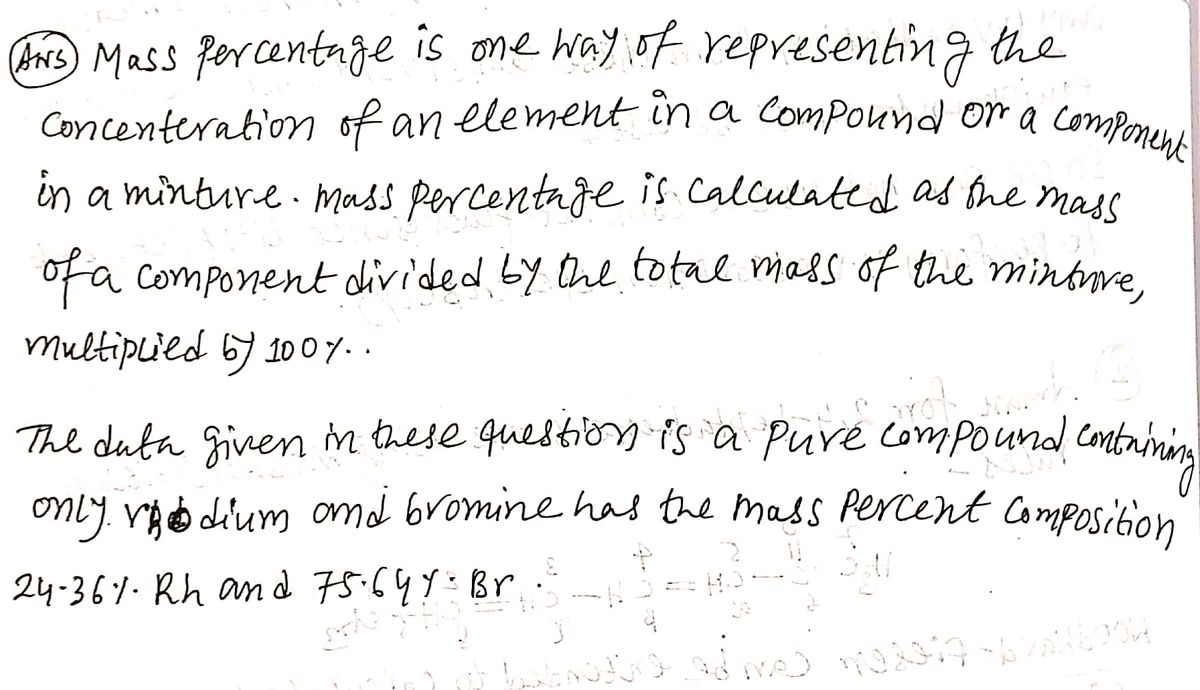 Ans Mass Percentage is one way of representing the
Concenteration of an element in a Compound or a Component
in a minture. Mass Percentage is Calculated as the mass
of a component divided by the total mass of the minture,
multiplied by 100%.
The data given in these question is a Pure Compound Containing
only rhodium and bromine has the mass Percent Composition
24.36% Rh and 75.64% Br.